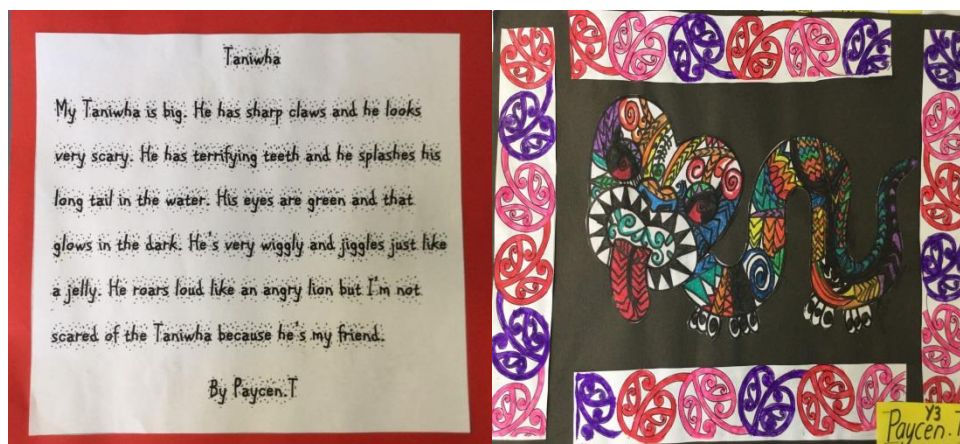 Taniwha
My Taniwha is big. He has sharp claws and he looks
very scary. He has terrifying teeth and he splashes his
long tail in the water. His eyes are green and that
glows in the dark. He's very wiggly and jiggles just like
a jelly. He roars loud like an angry lion but I'm not
scared of the Taniwha because he's my friend.
By Paycen.T
Y3
Paycen.T